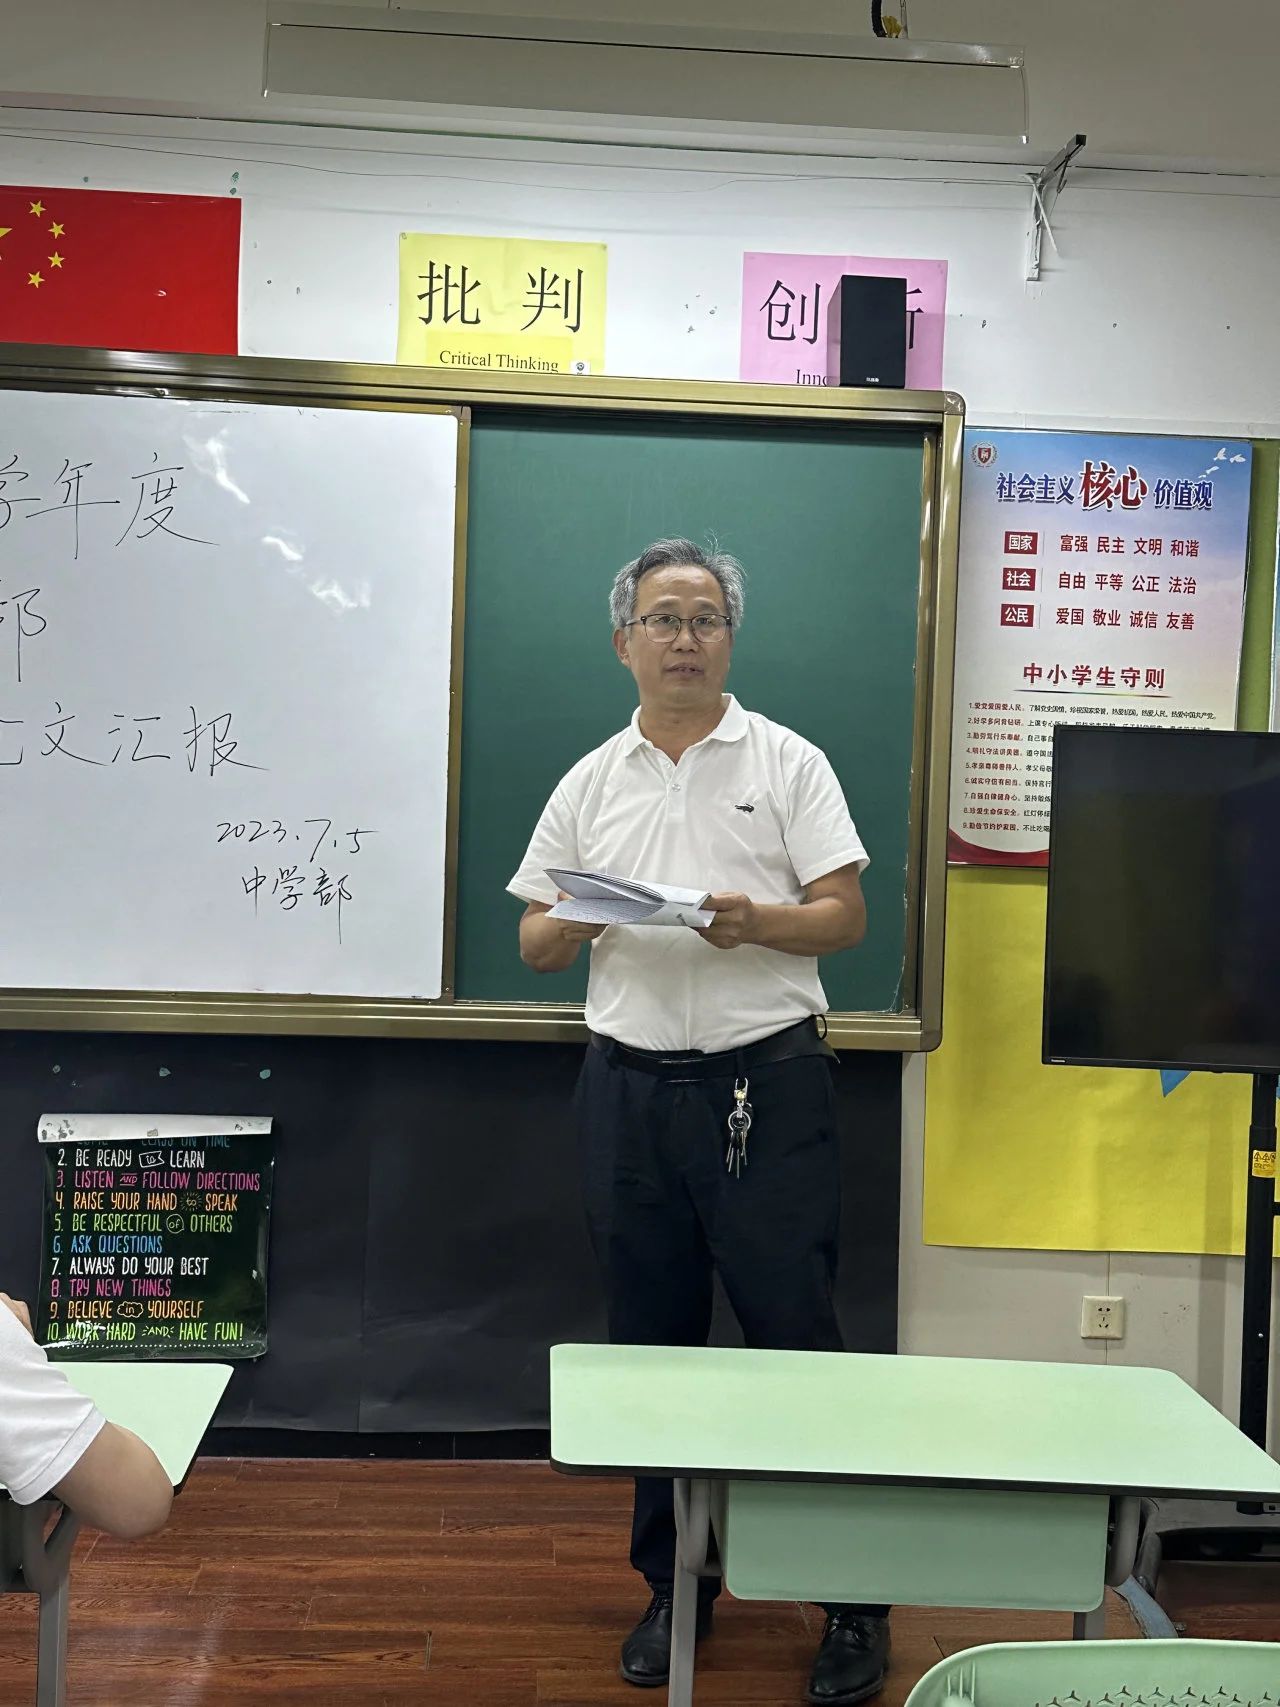 批 判
Critical Thinking
创
学年度
部
文汇报
2023.7.5
中学部
社会主义核心价值观
国家 富强 民主 文明 和谐
社会 自由 平等 公正 法治
公民 爱国 敬业 诚信 友善
中小学生守则
1.爱党爱国爱人民。了解党史国情，珍视国家荣誉，热爱祖国，热爱人民，热爱中国共产党。
2.好学多问肯钻研。上课专心听讲
3.勤劳笃行乐奉献。自己事自
4.明礼守法讲美德。遵守国法
5.孝亲尊师善待人。孝父母敬
6.诚实守信有担当。保持言行
7.自强自律健身心。坚持锻炼
8.珍爱生命保安全。红灯停绿
9.勤俭节约护家园。不比吃喝
CLASS ON TIME
2. BE READY to LEARN
3. LISTEN AND FOLLOW DIRECTIONS
4. RAISE YOUR HAND to SPEAK
5. BE RESPECTFUL of OTHERS
6. ASK QUESTIONS
7. ALWAYS DO YOUR BEST
8. TRY NEW THINGS
9. BELIEVE in YOURSELF
10. WORK HARD AND HAVE FUN!